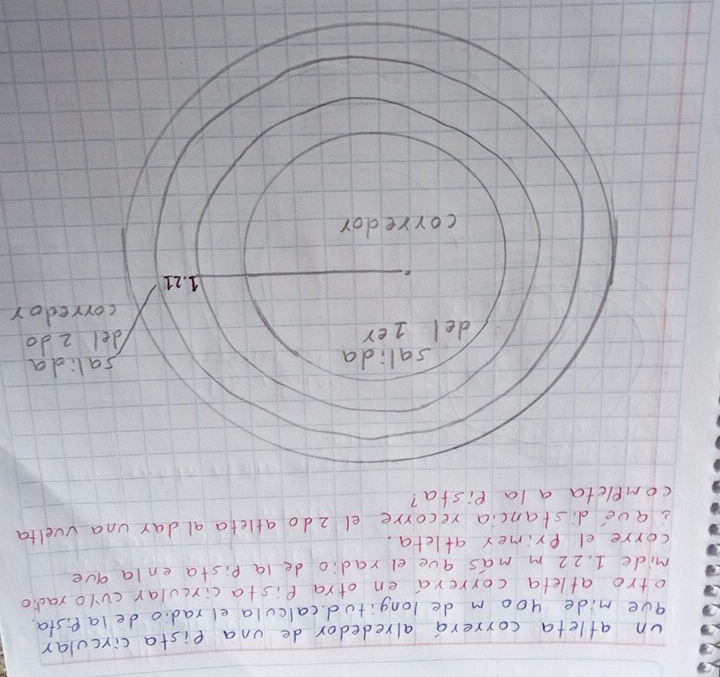 un atleta correrá alrededor de una pista circular
que mide 400 m de longitud.calcula el radio de la Pista.
otro atleta correrá en otra Pista circular cuyo radio
mide 1.22 m más que el radio de la Pista en la que
corre el Primer atleta.
¿que distancia recorre el 2do atleta al dar una vuelta
completa a la Pista?
salida
del 1er
corredor
salida
del 2do
corredor
1.21